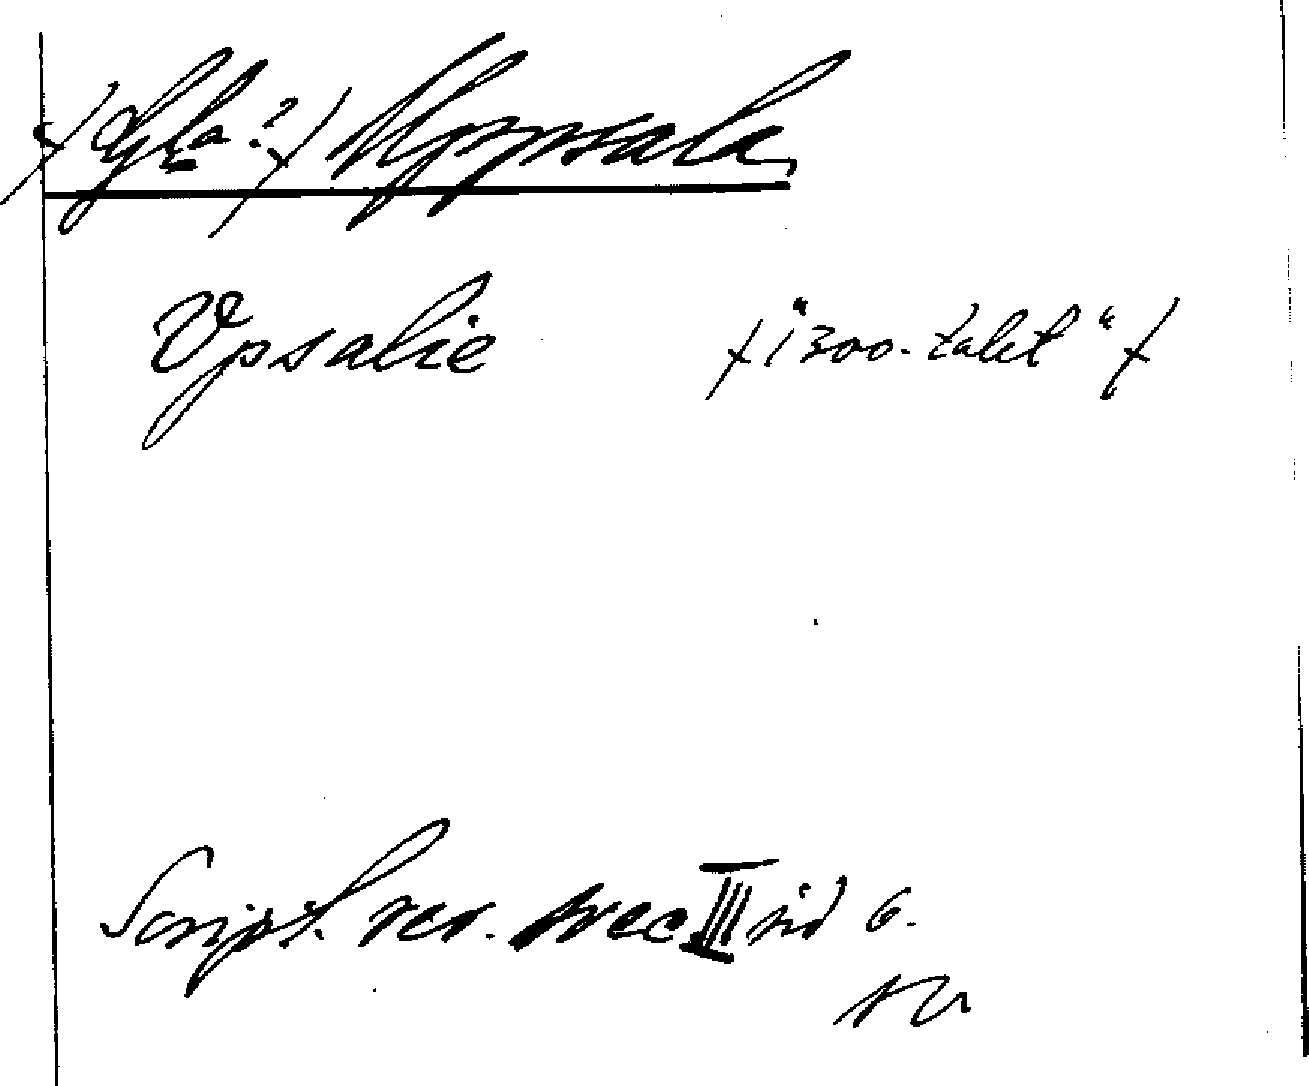 /Gla?/ Uppsala
Vpsalie /"1300-talet"/
Script. rer. svec III sid 6.